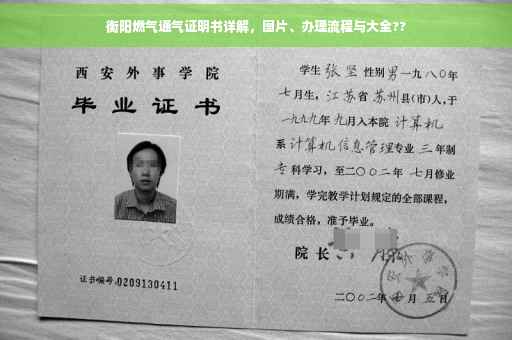 衡阳燃气通气证明书详解，图片、办理流程与大全??
西安外事学院
毕业证书
证书编号:0209130411
学生 张坚 性别 男 一九八〇年
七月生，江苏省 苏州县(市)人，于
一九九九年 九月入本院 计算机
系 计算机信息管理专业 三 年制
专 科学习，至二〇〇二年 七月修业
期满，学完教学计划规定的全部课程，
成绩合格，准予毕业。
院长
二〇〇二年 七 月 五 日